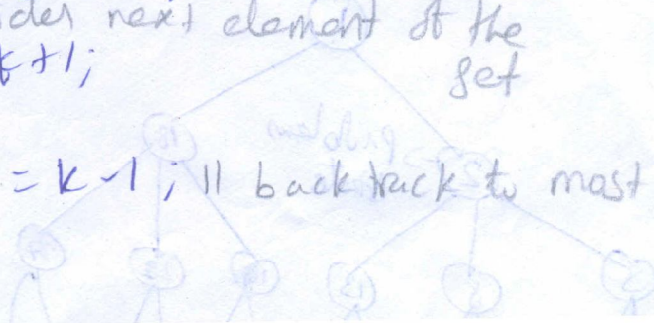 der next element of the
k+1; set
= k-1; // backtrack to most